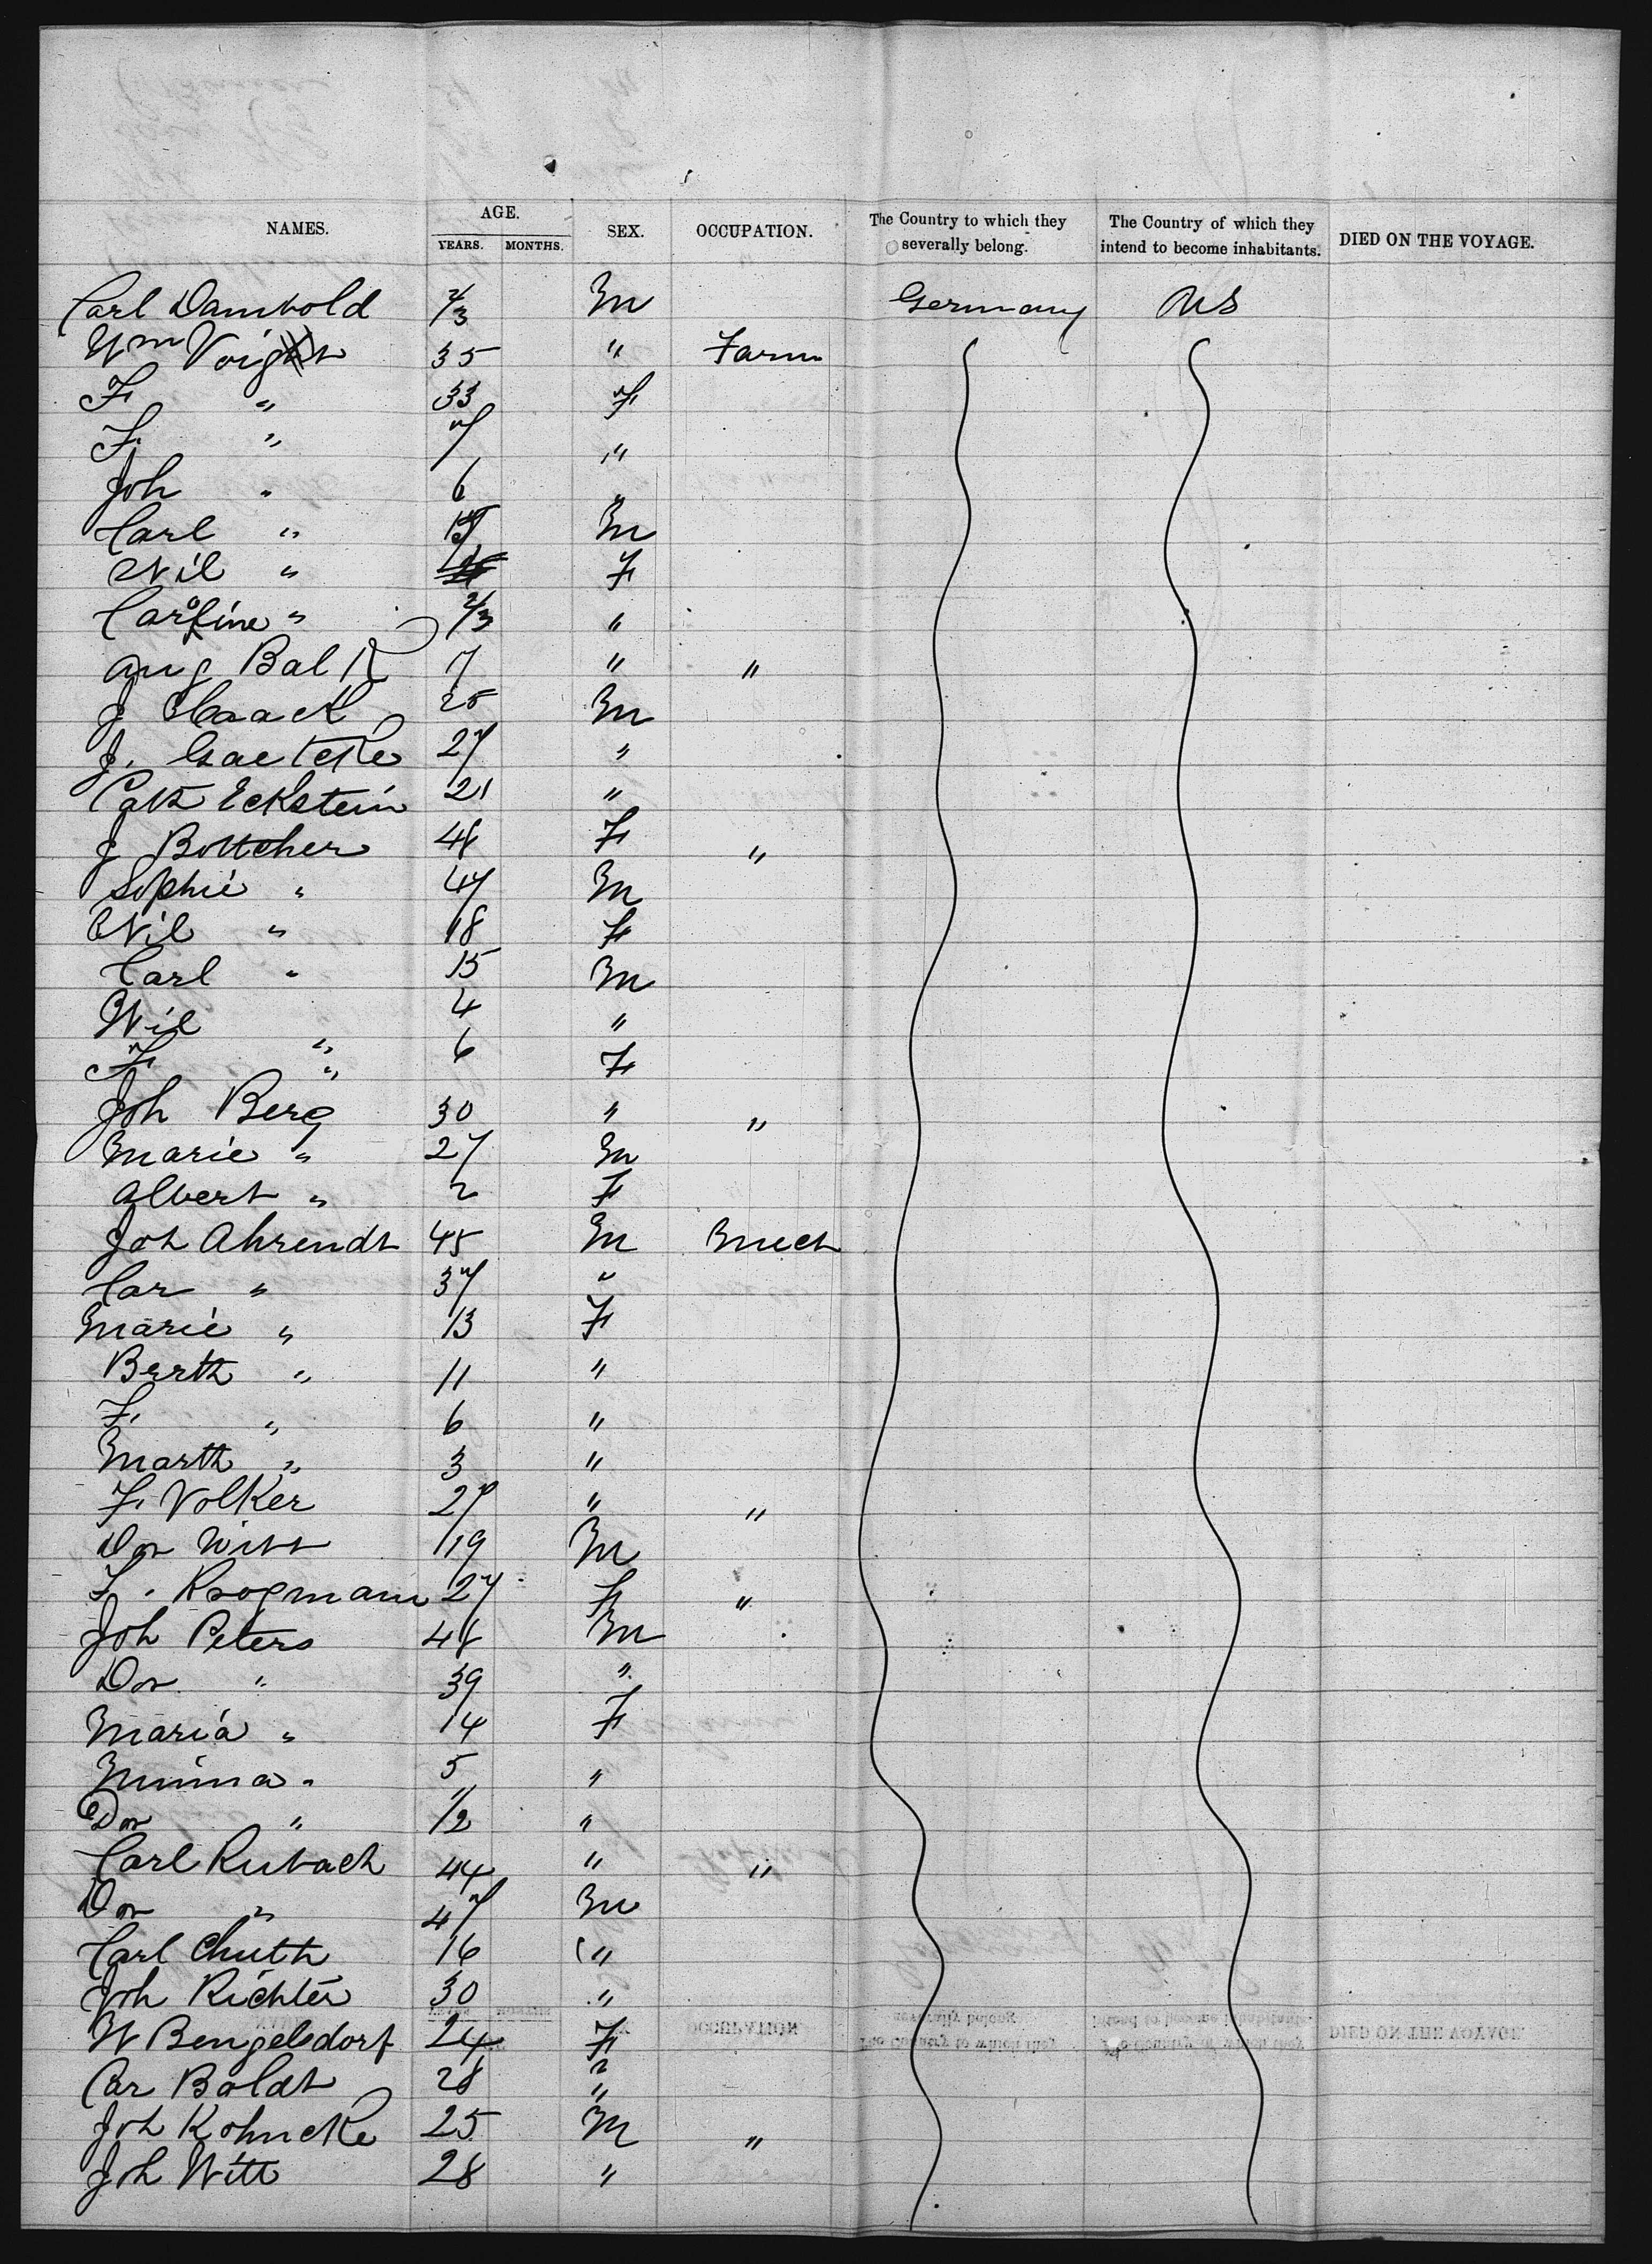 NAMES. AGE. YEARS. MONTHS. SEX. OCCUPATION. The Country to which they severally belong. The Country of which they intend to become inhabitants. DIED ON THE VOYAGE.
Carl Dambold 2/3 M Germany US
Wm Voigt 35 " Farm
F. " 33 F
F. " 7 "
Joh " 6 "
Carl " M
Wil " F
Caroline " 2/3 "
Aug Balk 7 " "
J Haack 25 M
J. Gaetcke 27 "
Cath Eckstein 21 "
J Bottcher 48 F "
Sophie " 47 M
Wil " 18 F
Carl " 15 M
Wil " 4 "
F " 6 F
Joh Berg 30 " "
Marie " 27 M
Albert " 2 F
Joh Ahrendt 45 M Mech
Car " 37 "
Marie " 13 F
Berth " 11 "
F. " 6 "
Marth " 3 "
F. Volker 27 " "
Dor Witt 19 M
F. Krogmann 27 F "
Joh Peters 48 M
Dor " 39 "
Maria " 14 F
Minna " 5 "
Dor " 1/2 "
Carl Rubach 44 " "
Dor " 47 M
Carl Chuth 16 "
Joh Richter 30 "
W Bengelsdorf 24 F
Car Boldt 28 "
Joh Kohncke 25 M "
Joh Witt 28 "